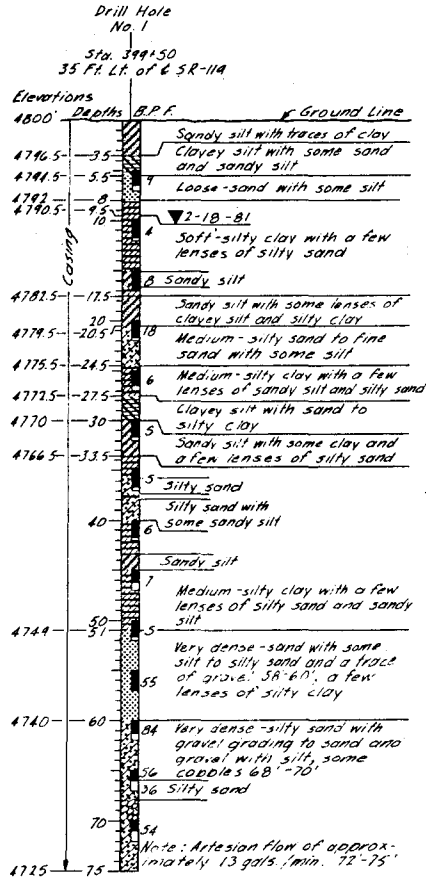 Drill Hole
No. 1
Sta. 399+50
35 Ft. Lt. of ℄ SR-114
Elevations
Depths B.P.F. Ground Line
4800'
Sandy silt with traces of clay
4796.5 3.5 Clayey silt with some sand
and sandy silt
4794.5 5.5 9
Loose-sand with some silt
4792 8
4790.5 9.5
10 2-18-81
4 Soft-silty clay with a few
lenses of silty sand
Casing
8 Sandy silt
4782.5 17.5
Sandy silt with some lenses of
clayey silt and silty clay
20
4779.5 20.5 18
Medium-silty sand to fine
sand with some silt
4775.5 24.5
6 Medium-silty clay with a few
lenses of sandy silt and silty sand
4772.5 27.5
Clayey silt with sand to
silty clay
4770 30
5 Sandy silt with some clay and
a few lenses of silty sand
4766.5 33.5
5
Silty sand
Silty sand with
some sandy silt
40
6
Sandy silt
7
Medium-silty clay with a few
lenses of silty sand and sandy
silt
50
4749 51 5
Very dense-sand with some
silt to silty sand and a trace
of gravel 58'-60', a few
lenses of silty clay
55
4740 60
84 Very dense-silty sand with
gravel grading to sand and
gravel with silt, some
cobbles 68'-70'
56
36 Silty sand
70
54
Note: Artesian flow of approx-
imately 13 gals./min. 72'-75'
4725 75